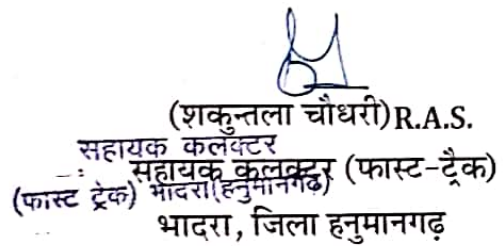 (शकुन्तला चौधरी) R.A.S.
सहायक कलक्टर
सहायक कलक्टर (फास्ट-ट्रैक)
(फास्ट ट्रेक) भादरा (हनुमानगढ)
भादरा, जिला हनुमानगढ़